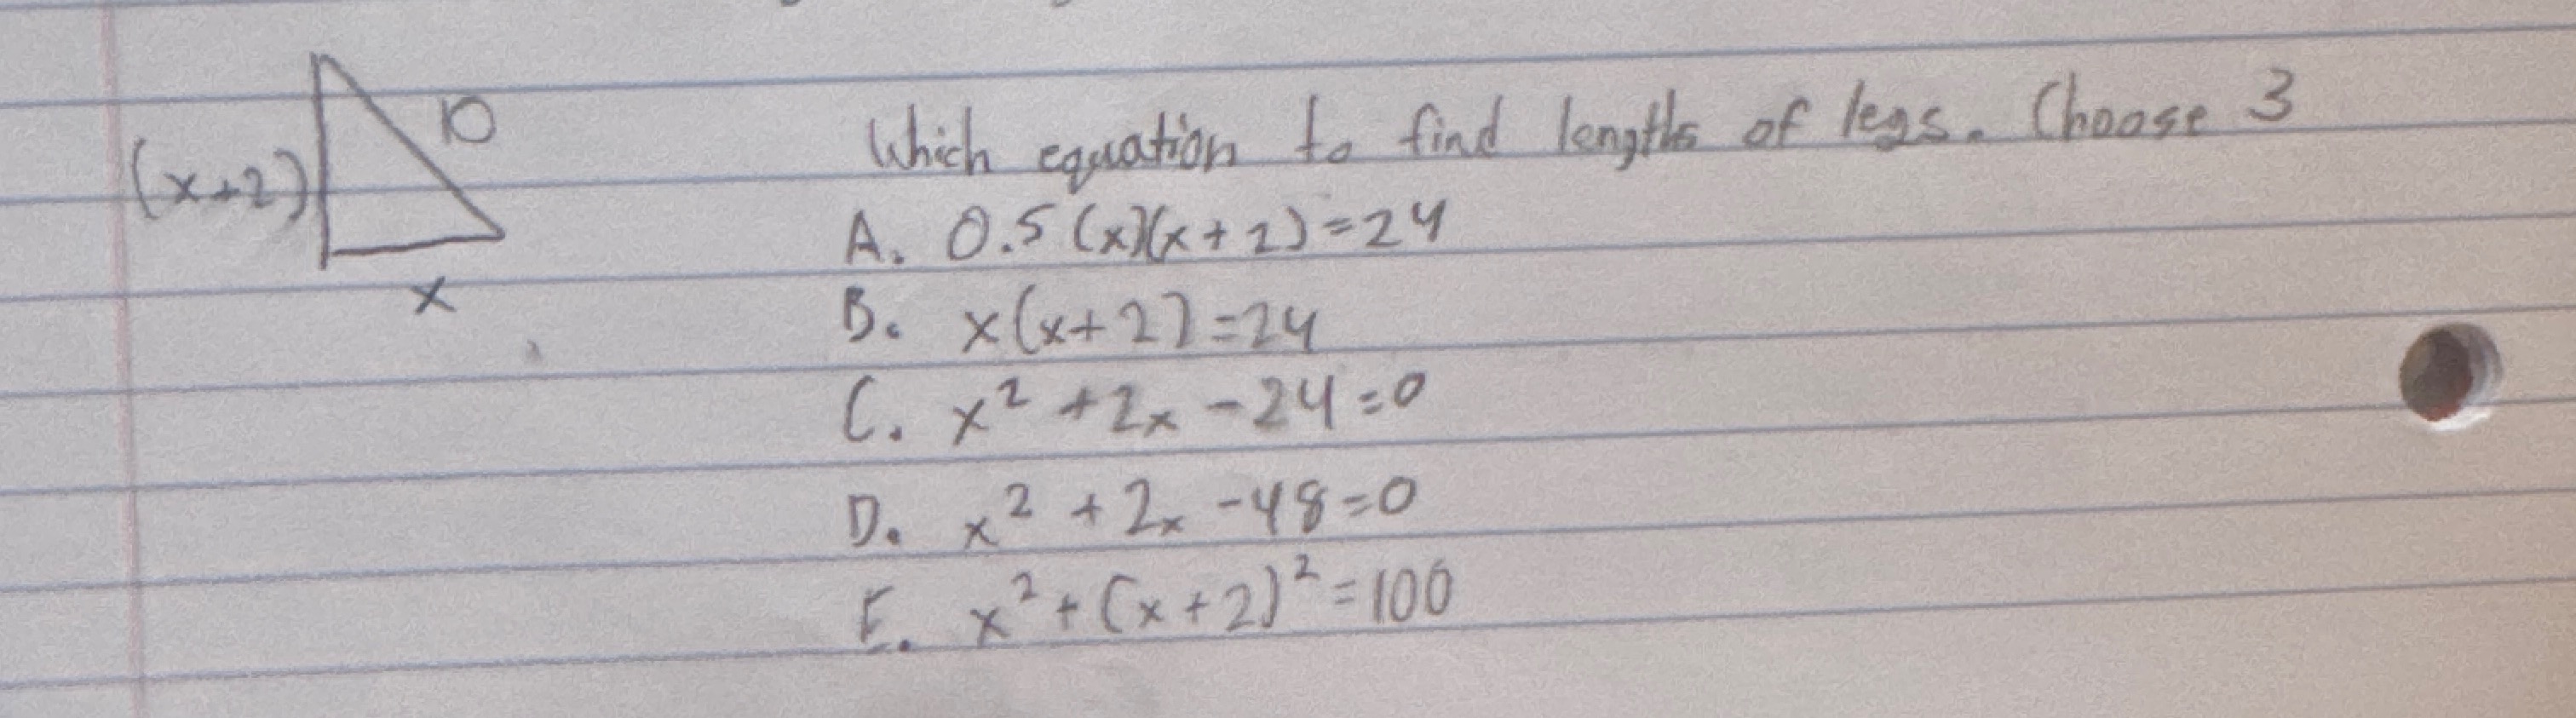 10
(x+2)
x
Which equation to find lengths of legs. Choose 3
A. 0.5(x)(x+2)=24
B. x(x+2)=24
C. x² +2x -24=0
D. x² +2x -48=0
E. x²+(x+2)²=100